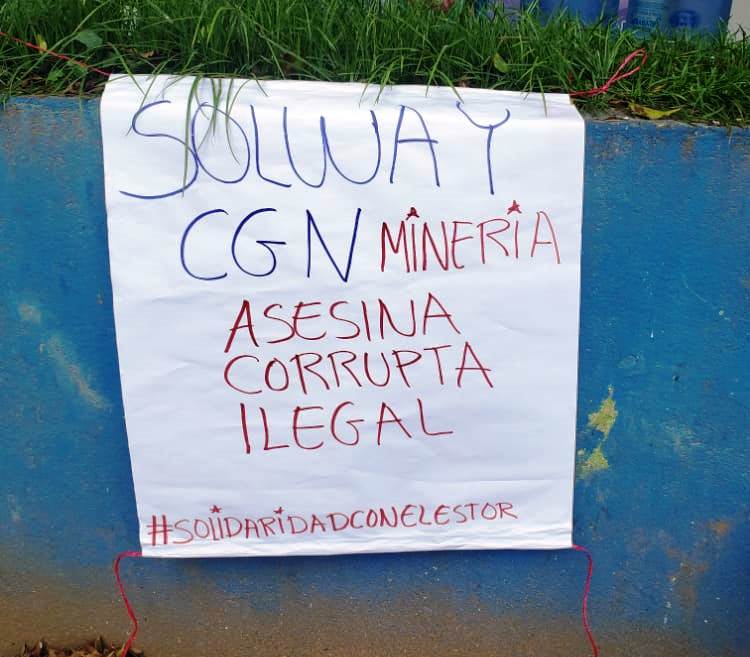 SOLWAY
CGN MINERIA
ASESINA
CORRUPTA
ILEGAL
#SOLIDARIDADCONELESTOR